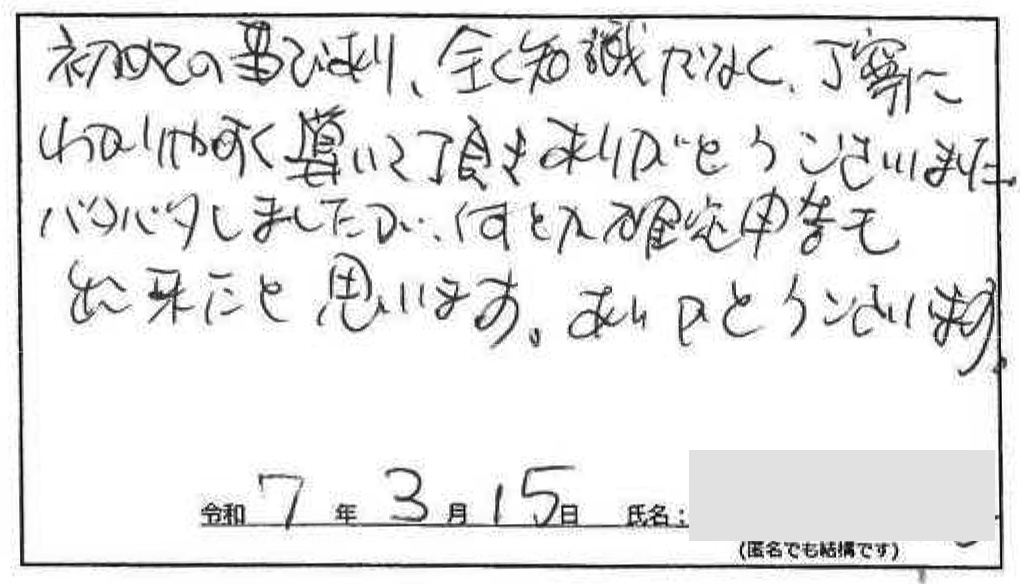 初めての事であり、全く知識がなく、丁寧に
わかりやすく導いて頂きありがとうございました
バタバタしましたが、何とか確定申告も
出来たと思います。ありがとうございます。
令和 7 年 3 月 15 日 氏名：
(匿名でも結構です)